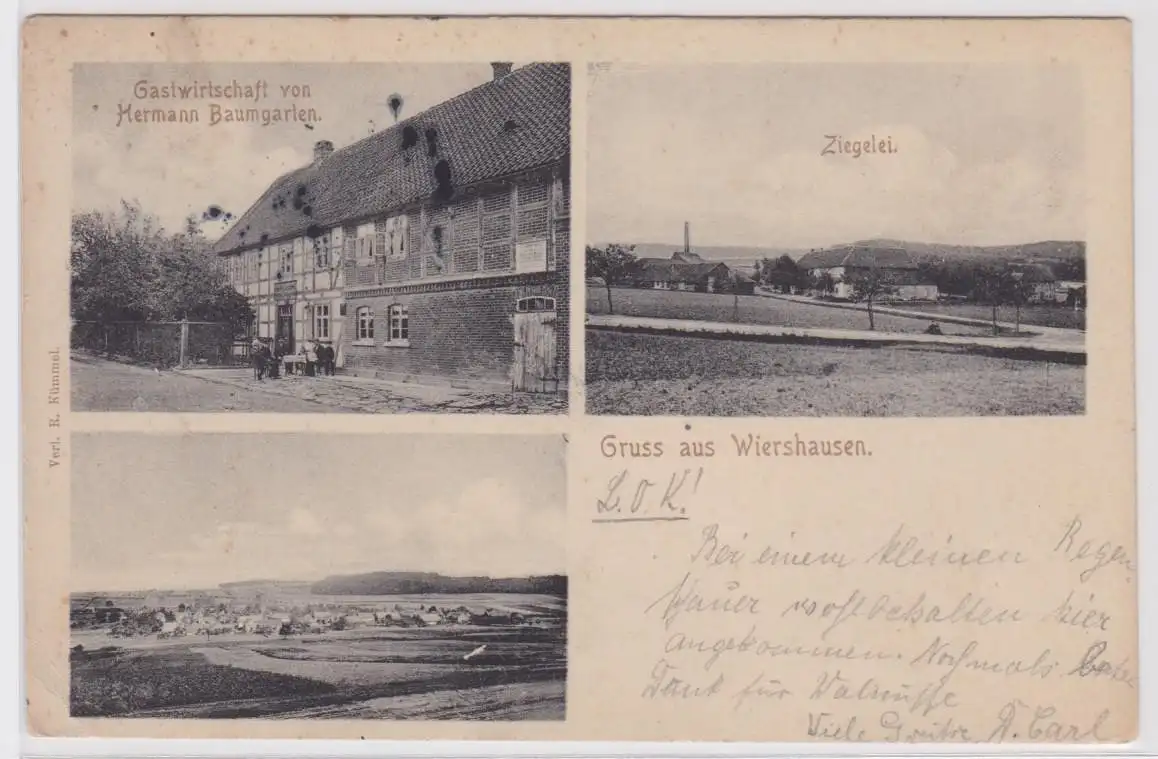 Gastwirtschaft von
Hermann Baumgarten.
Ziegelei.
Verl. R. Kümmel.
Gruss aus Wiershausen.
L. O. K!
Bei einem kleinen Regen
schauer wohlbehalten hier
angekommen. Nochmals
Dank für Walnüsse
Viele Grüße Carl